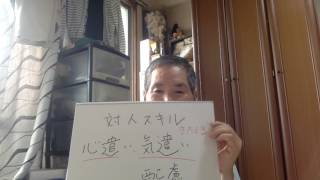 対人スキル
心遣い、気遣い
配慮